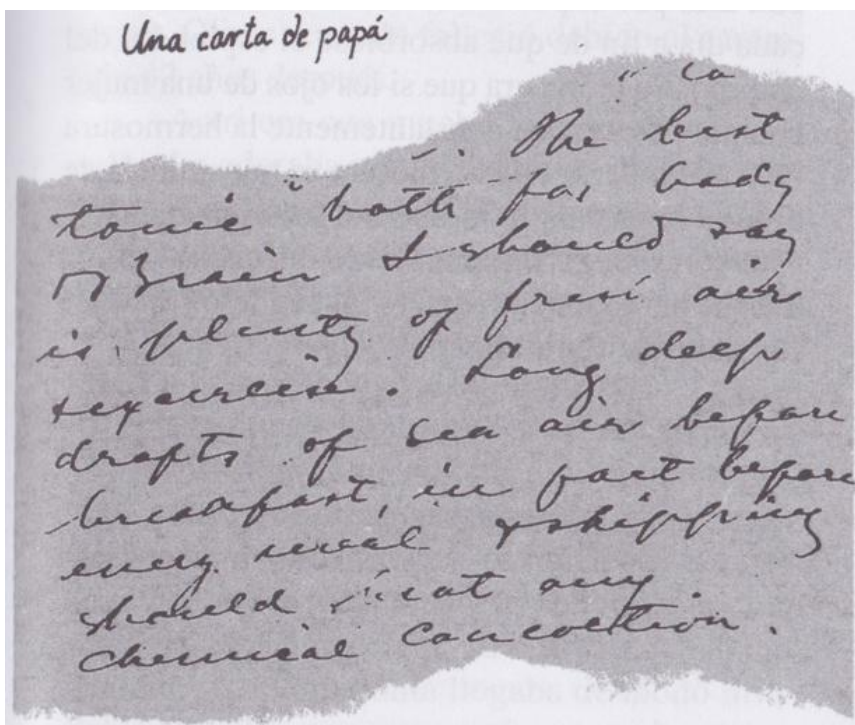 Una carta de papá
The best
tonic both for body
& Brain I should say
is plenty of fresh air
& exercise. Long deep
drafts of sea air before
breakfast, in fact before
every meal & skipping
should beat any
chemical concoction.